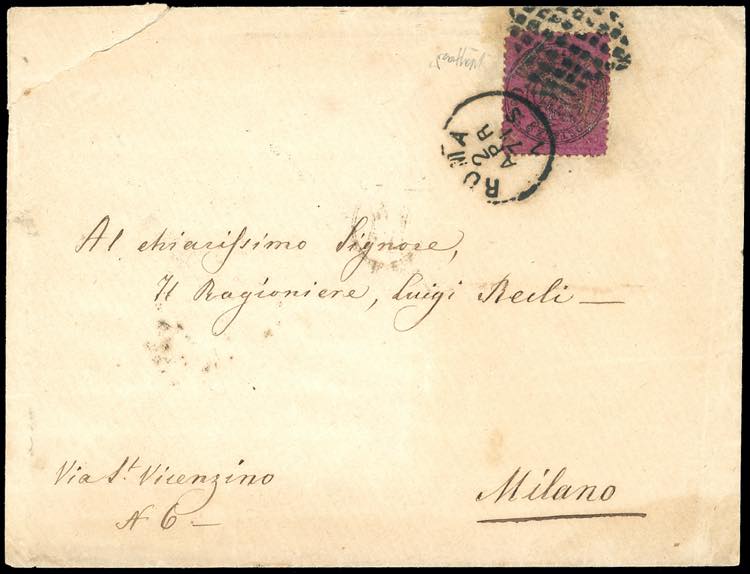 ROMA
2
APR
71
S
Al chiarissimo Signore,
Il Ragioniere, Luigi Redi —
Via St. Vicenzino
N 6 —
Milano